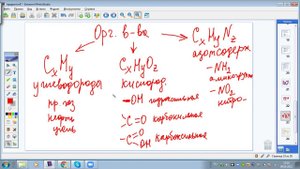 Орг. в-ва
CxHy
углеводороды
пр. газ
нефть
уголь
CxHyOz
кислород.
-OH гидроксильная
C=O карбонильная
-C=O OH карбоксильная
CxHyNz
азотсодерж.
-NH2
аминогруппа
-NO2
нитро-